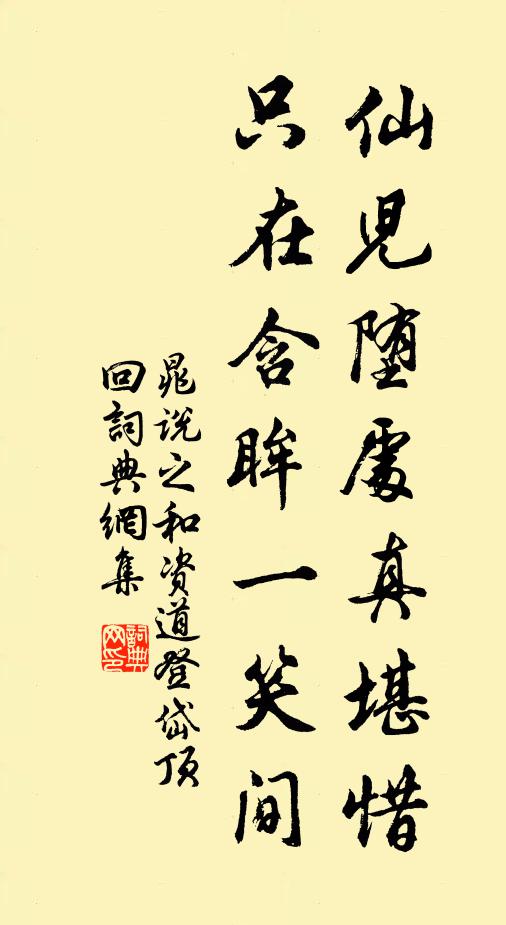 仙児堕處真堪惜
只在含眸一笑间
晁说之和资道登岱顶
回詞典網集
詞典網印